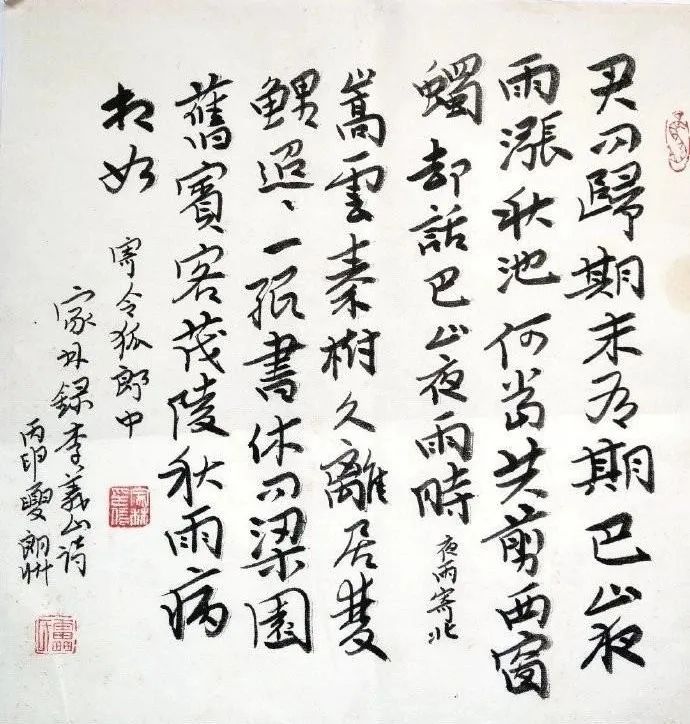 君問歸期未有期巴山夜
雨漲秋池何當共剪西窗
燭却話巴山夜雨時 夜雨寄北
嵩雲秦樹久離居雙
鯉迢〻一紙書休問梁園
舊賓客茂陵秋雨病
相如 寄令狐郎中
家林錄李義山詩
丙申夏朗州